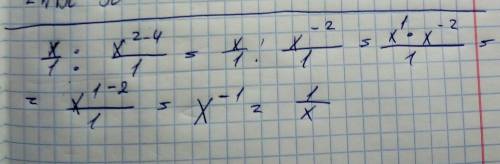 x/1 : x^(2-4)/1 = x/1 : x^(-2)/1 = x^1 · x^(-2)/1 =
= x^(1-2)/1 = x^(-1) = 1/x